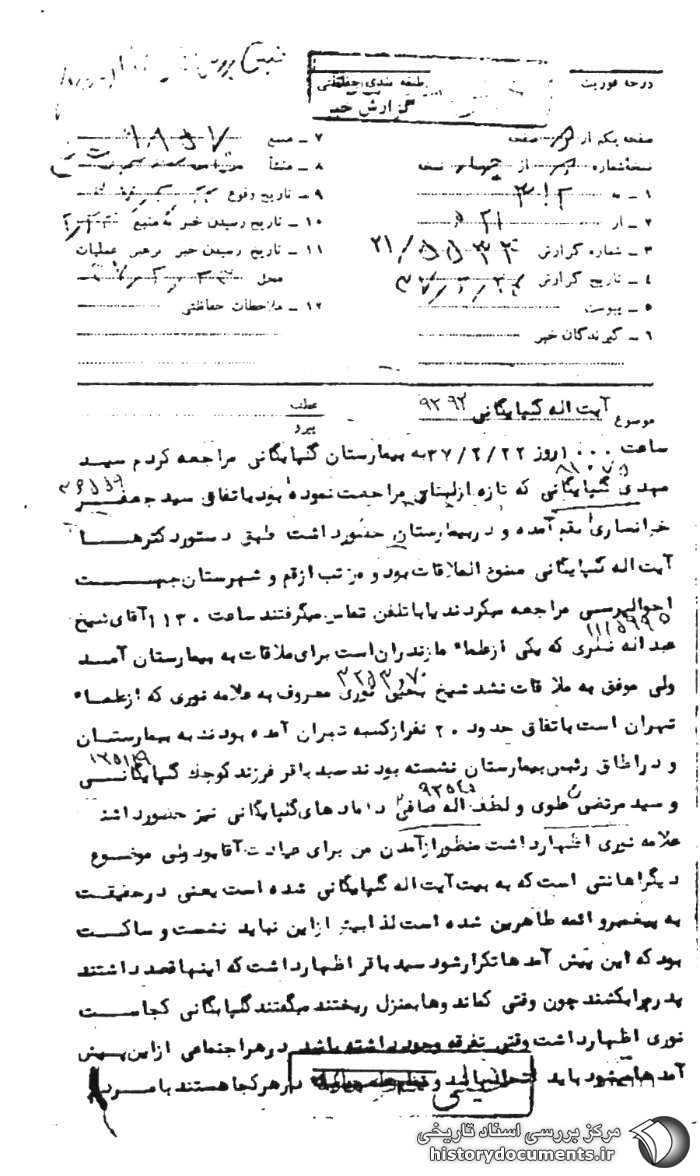 درجه فوریت
طبقه بندی حفاظتی
گزارش خبر
صفحه یکم از صفحه
نسخه شماره از چهار نسخه
۱ ـ به ۳۱۲
۲ ـ از ۲۱
۳ ـ شماره گزارش
۴ ـ تاریخ گزارش
۵ ـ پیوست
۶ ـ گیرندگان خبر
۷ ـ منبع
۸ ـ منشأ
۹ ـ تاریخ وقوع
۱۰ ـ تاریخ رسیدن خبر به منبع
۱۱ ـ تاریخ رسیدن خبر برهبر عملیات
محل
۱۲ ـ ملاحظات حفاظتی
موضوع آیت اله گلپایگانی ۹۲۹۲
عطف
پیرو
ساعت ۱۰۰۰ روز ۳۷/۲/۲۲ به بیمارستان گلپایگانی مراجعه کردم سید
مهدی گلپایگانی که تازه از لبنان مراجعت نموده بود باتفاق سید جعفر
خوانساری بقم آمده و در بیمارستان حضور داشت طبق دستور دکترها
آیت اله گلپایگانی ممنوع الملاقات بود و مرتب از قم و شهرستان جهت
احوالپرسی مراجعه میکردند یا با تلفن تماس میگرفتند ساعت ۱۱۳۰ آقای شیخ
عبداله نظری که یکی از علماء مازندران است برای ملاقات به بیمارستان آمد
ولی موفق به ملاقات نشد شیخ یحیی نوری معروف به علامه نوری که از علماء
تهران است باتفاق حدود ۲۰ نفر از کسبه تهران آمده بودند به بیمارستان
و در اطاق رئیس بیمارستان نشسته بودند سید باقر فرزند کوچک گلپایگانی
و سید مرتضی علوی و لطف اله صافی دامادهای گلپایگانی نیز حضور داشتند
علامه نوری اظهار داشت منظور از آمدن من برای عیادت آقا بود ولی موضوع
دیگر اهانتی است که به بیت آیت اله گلپایگانی شده است یعنی در حقیقت
به پیغمبر و ائمه طاهرین شده است لذا بیشتر از این نباید نشست و ساکت
بود که این پیش آمدها تکرار شود سید باقر اظهار داشت که اینها قصد داشتند
پدرم را بکشند چون وقتی کماندوها بمنزل ریختند میگفتند گلپایگانی کجاست
نوری اظهار داشت وقتی تفرقه وجود داشته باشد در هر اجتماعی از این پیش
آمدها میشود باید در هر کجا هستند با مردم
خیلی
مرکز بررسی اسناد تاریخی
historydocuments.ir